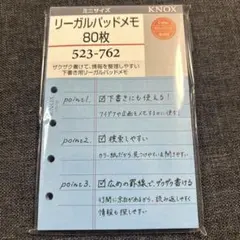 ミニサイズ
KNOX
リーガルパッドメモ
80枚
523-762
ザクザク書けて、情報を整理しやすい
下書き用リーガルパッドメモ
point1. ☑下書きにも使える！
アイデアや企画をメモするのに便利
point2. ☑検索しやすい
point3. ☑広めの罫線で、ザクザク書ける
行間に余白があるから、読み返しやすく
情報も探しやすい